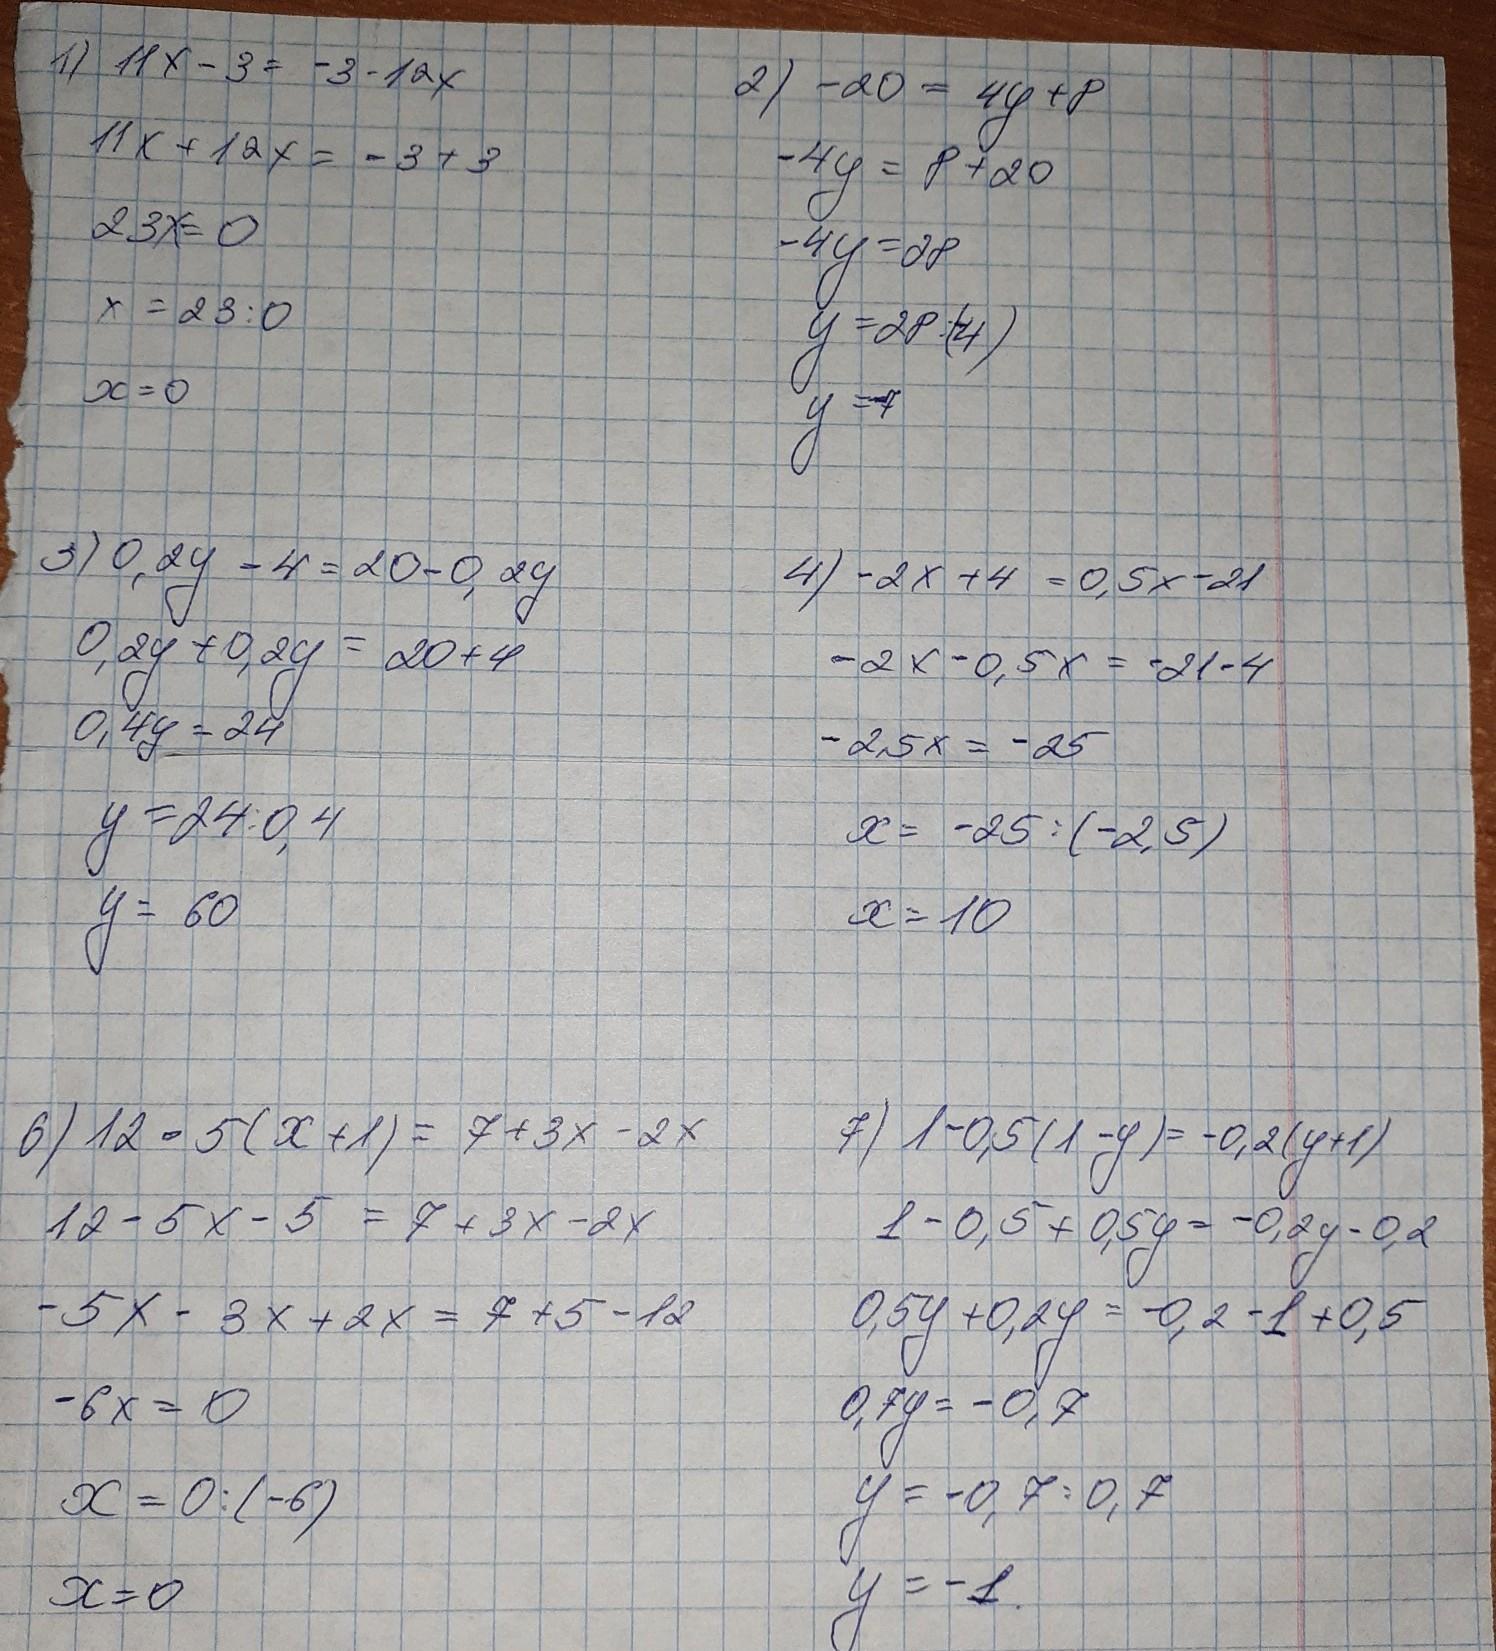 1) 11x - 3 = -3 - 12x
11x + 12x = -3 + 3
23x = 0
x = 23 : 0
x = 0
2) -20 = 4y + 8
-4y = 8 + 20
-4y = 28
y = 28 : (-4)
y = -7
3) 0,2y - 4 = 20 - 0,2y
0,2y + 0,2y = 20 + 4
0,4y = 24
y = 24 : 0,4
y = 60
4) -2x + 4 = 0,5x - 21
-2x - 0,5x = -21 - 4
-2,5x = -25
x = -25 : (-2,5)
x = 10
6) 12 - 5(x + 1) = 7 + 3x - 2x
12 - 5x - 5 = 7 + 3x - 2x
-5x - 3x + 2x = 7 + 5 - 12
-6x = 0
x = 0 : (-6)
x = 0
7) 1 - 0,5(1 - y) = -0,2(y + 1)
1 - 0,5 + 0,5y = -0,2y - 0,2
0,5y + 0,2y = -0,2 - 1 + 0,5
0,7y = -0,7
y = -0,7 : 0,7
y = -1.